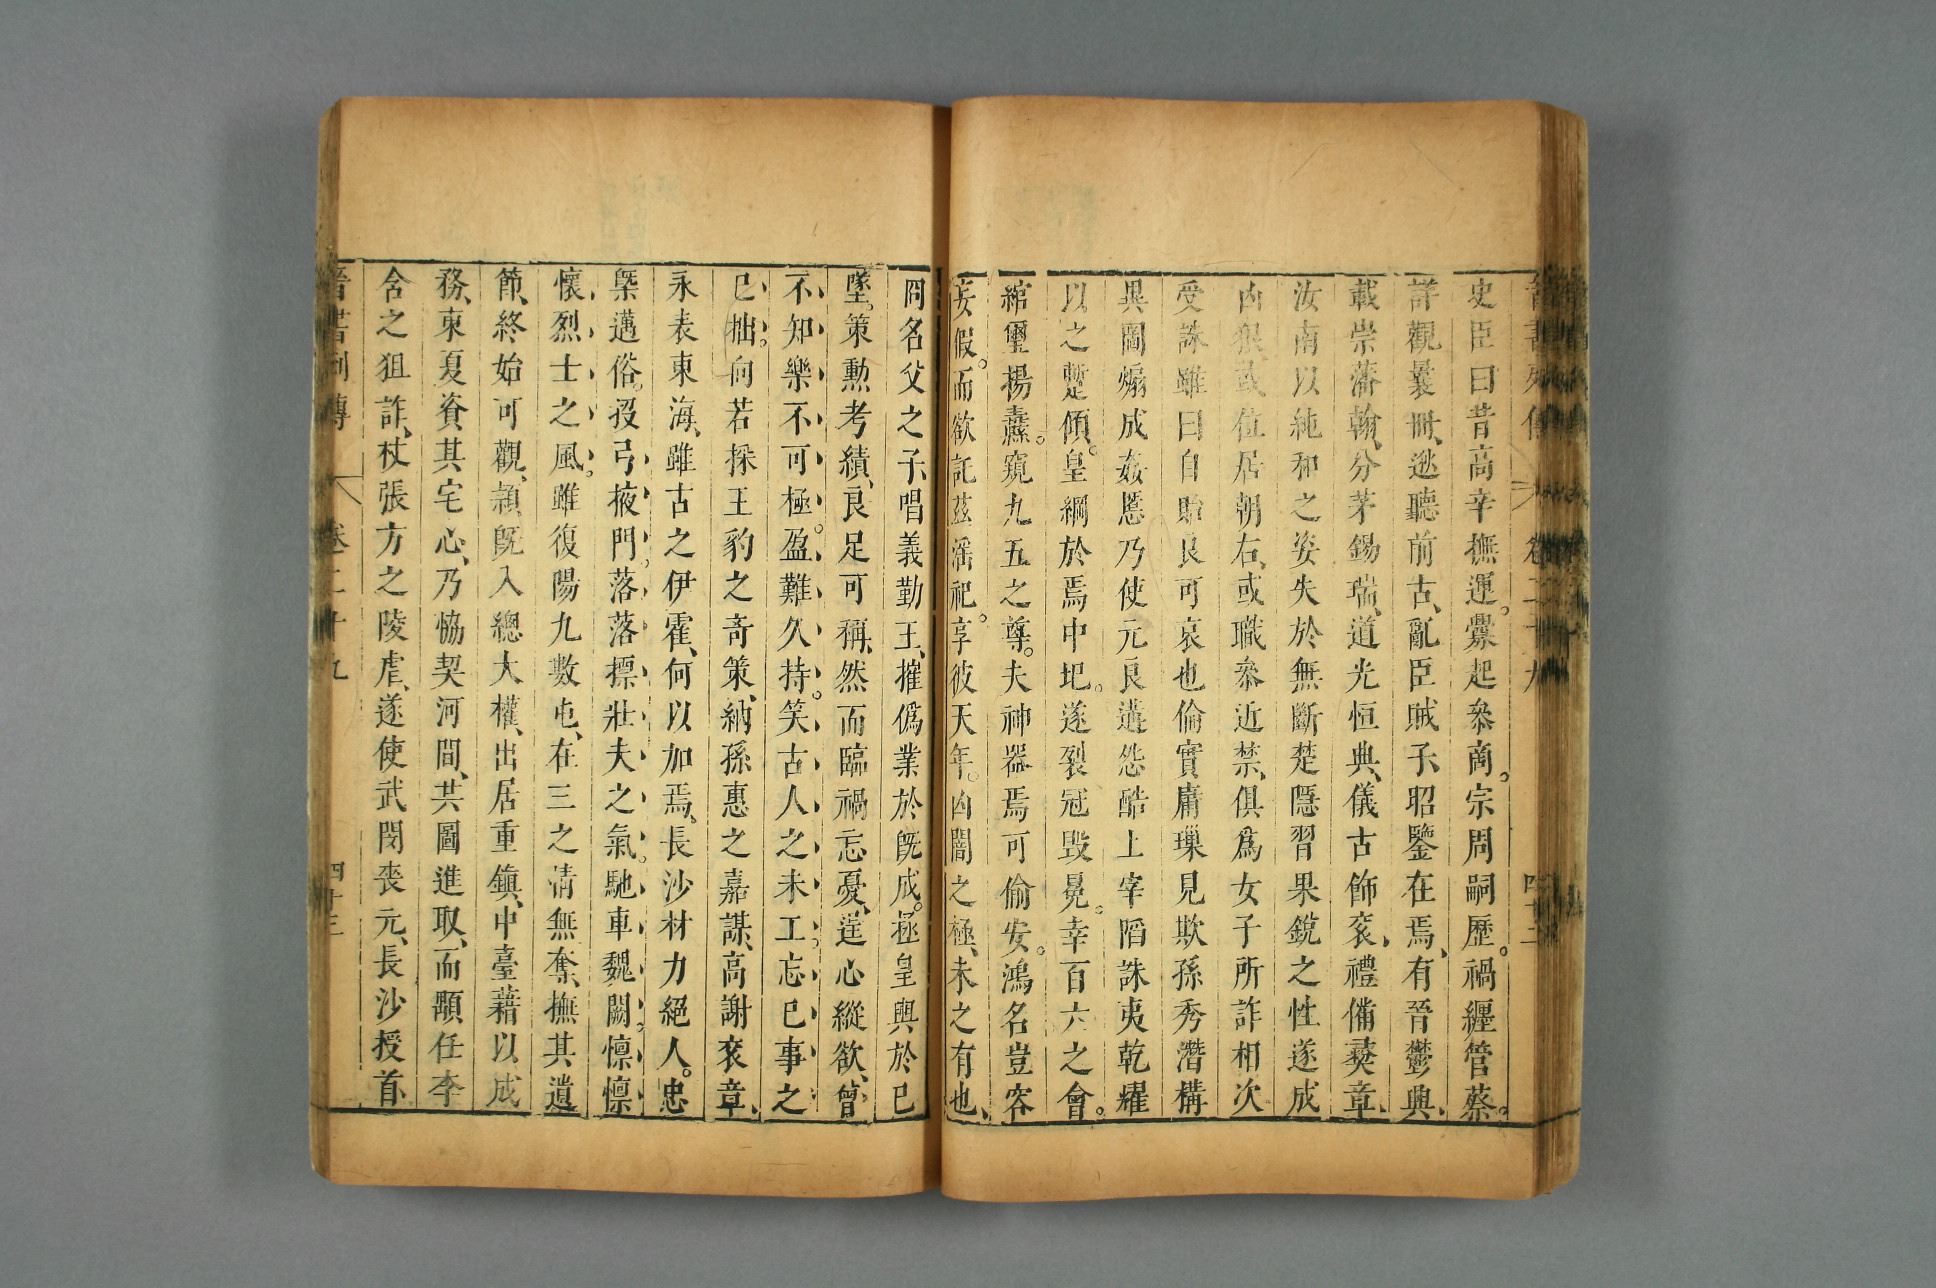 史臣曰昔高辛撫運。釁起參商。宗周嗣歷。禍纏管蔡。
詳觀曩冊、逖聽前古、亂臣賊子昭鑒在焉、有晉鬱興、
載崇藩翰、分茅錫瑞、道光恒典、儀古飾袞、禮備彝章、
汝南以純和之姿失於無斷楚隱習果銳之性遂成
凶狠、或位居朝右、或職參近禁、俱爲女子所詐相次
受誅雖曰自貽良可哀也倫實庸瑣見欺孫秀潛構
異圖煽成姦慝乃使元良遘怨酷上宰陷誅夷乾耀
以之蹔傾。皇綱於焉中圮。遂裂冠毀冕。幸百六之會。
綰璽揚纛。窺九五之尊。夫神器焉可偷安。鴻名豈容
妄假。而欲託茲淫祀。享彼天年。凶闇之極、未之有也、
冏名父之子、唱義勤王、摧僞業於旣成。拯皇輿於已
墜。策勲考績、良足可稱、然而臨禍忘憂、逞心縱欲、曾
不知樂不可極。盈難久持。笑古人之未工。忘已事之
已拙。向若採王豹之奇策、納孫惠之嘉謀、高謝袞章、
永表東海、雖古之伊霍、何以加焉、長沙材力絕人。忠
槩邁俗。投弓掖門。落落標壯夫之氣。馳車魏闕。懍懍
懷烈士之風。雖復陽九數屯、在三之情無奪、撫其遺
節、終始可觀、穎旣入總大權、出居重鎮、中臺藉以成
務、東夏資其宅心、乃恊契河間、共圖進取、而顒任李
含之狙詐、杖張方之陵虐、遂使武閔喪元、長沙授首
晉書列傳
卷二十九
四十三